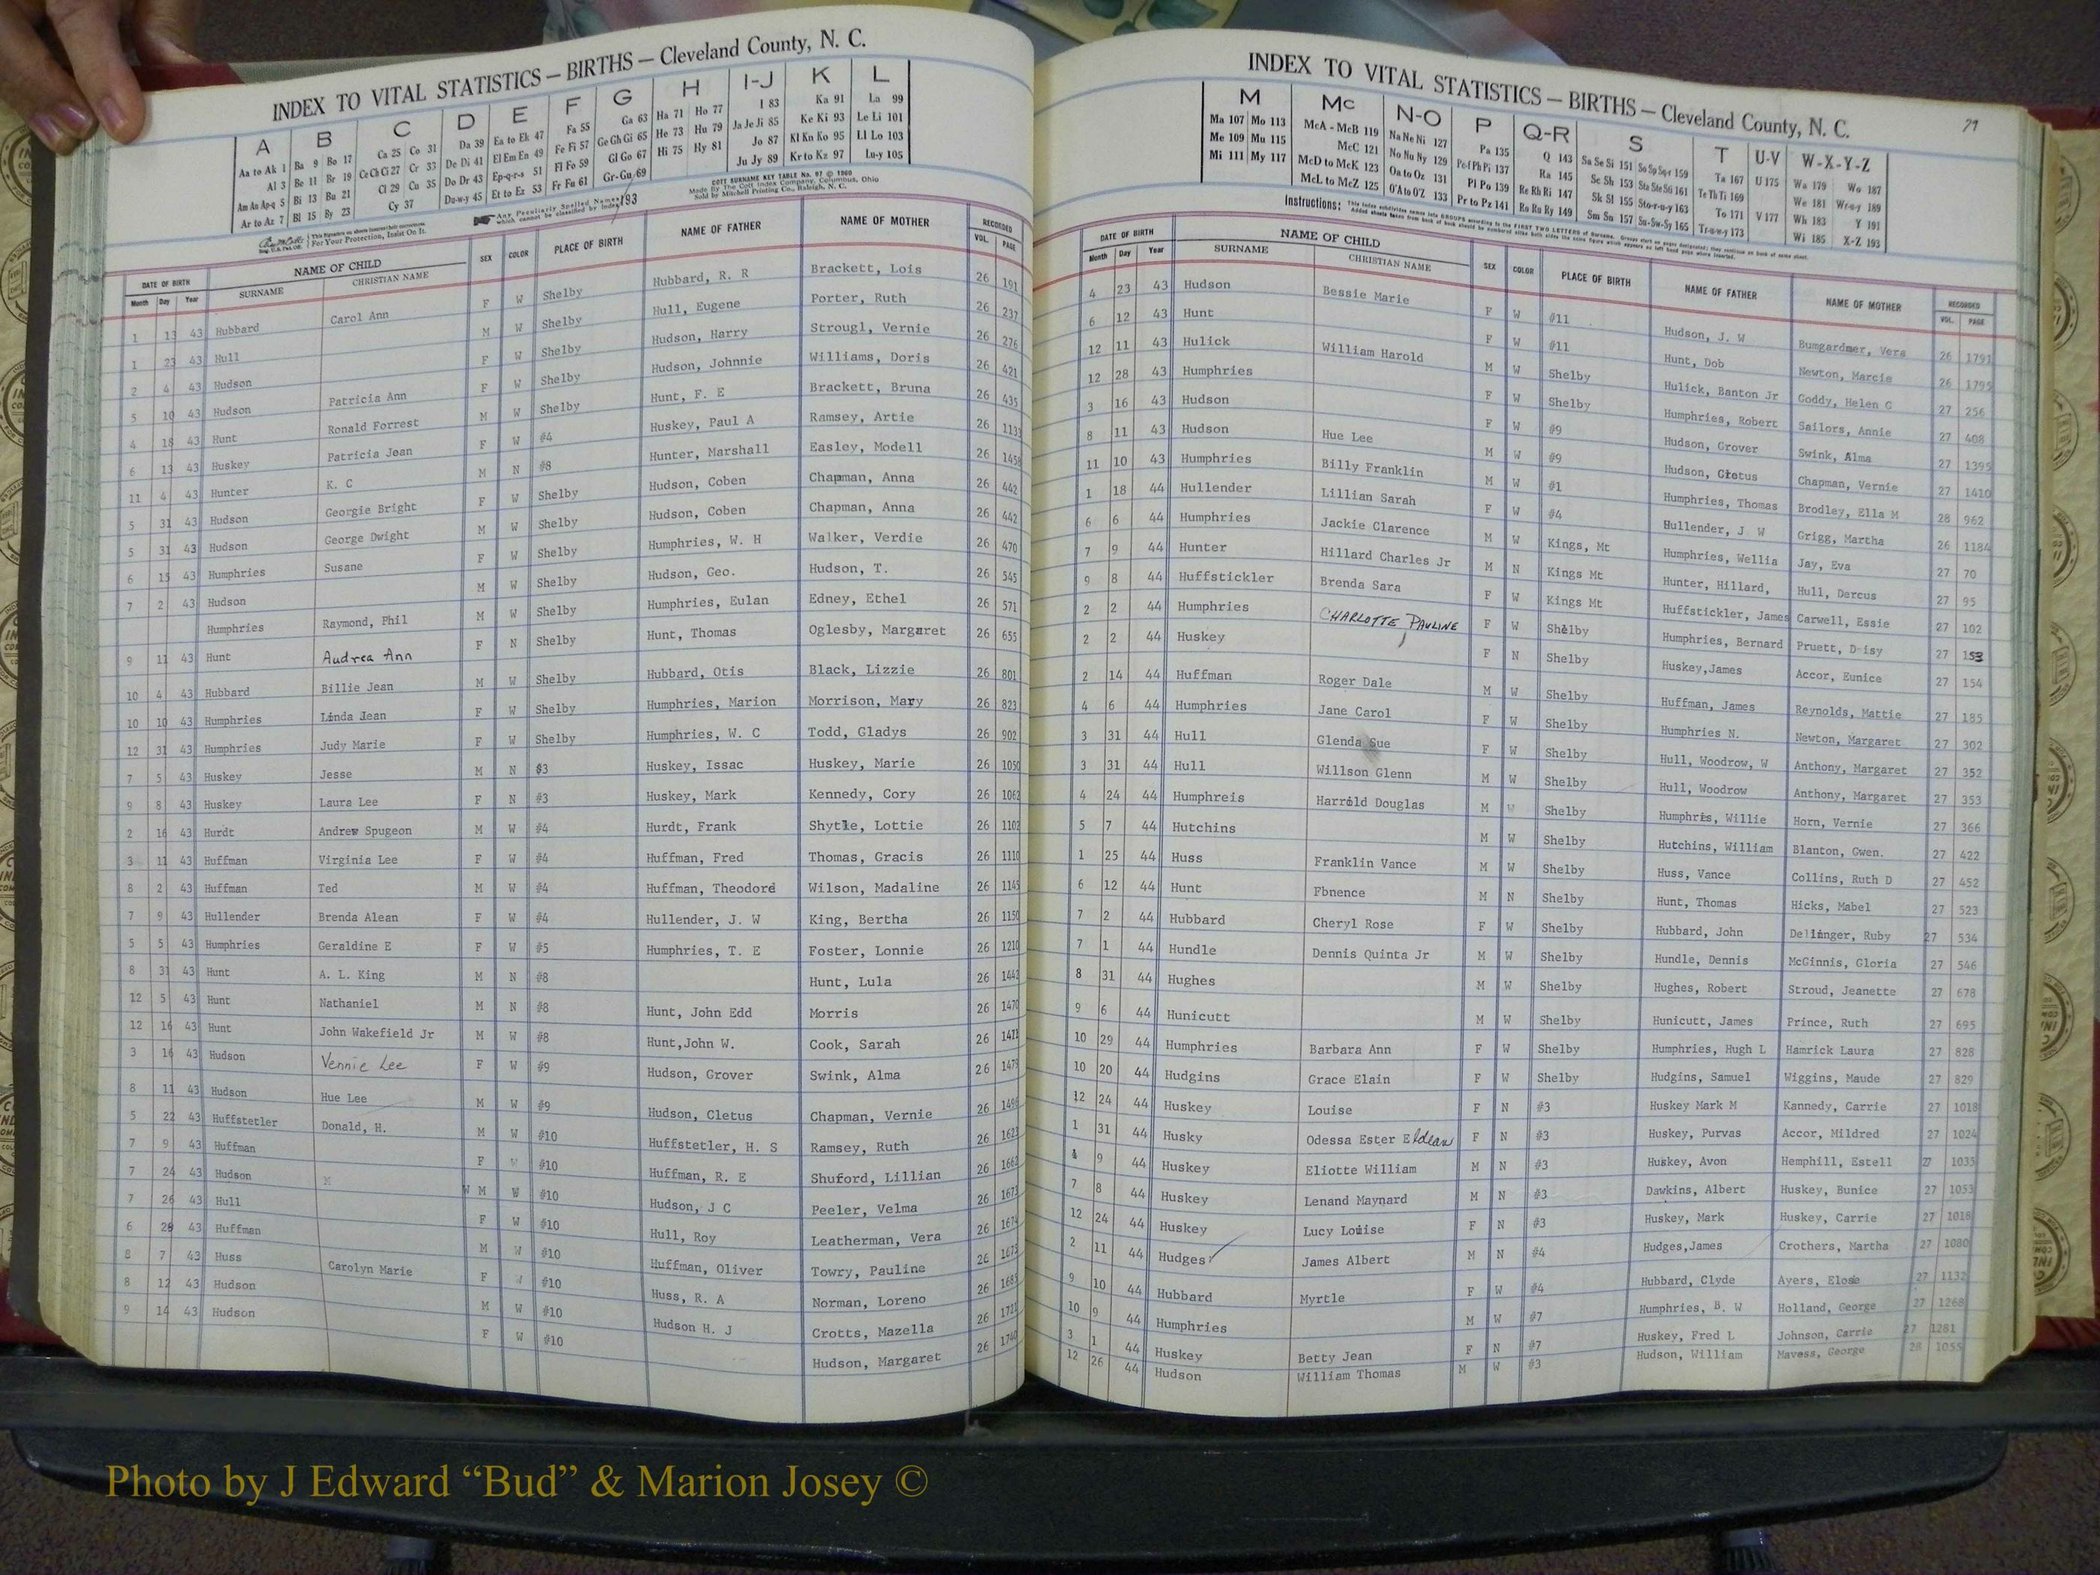 INDEX TO VITAL STATISTICS — BIRTHS — Cleveland County, N. C.
A B C D E F G H I-J K L
Aa to Ak 1 Ba 9 Bo 17 Ca 25 Co 31 Da 39 Ea to Ek 47 Fa 55 Ga 63 Ha 71 Ho 77 I 83 Ka 91 La 99
Al 3 Be 11 Br 19 Ce Ch Ci 27 Cr 33 De Di 41 El Em En 49 Fe Fi 57 Ge Gh Gi 65 He 73 Hu 79 Ja Je Ji 85 Ke Ki 93 Le Li 101
Am An Ap-q 5 Bi 13 Bu 21 Cl 29 Cu 35 Do Dr 43 Ep-q-r-s 51 Fl Fo 59 Gl Go 67 Hi 75 Hy 81 Jo 87 Kl Kn Ko 95 Ll Lo 103
Ar to Az 7 Bl 15 By 23 Cy 37 Du-w-y 45 Et to Ez 53 Fr Fu 61 Gr-Gu 69 Ju Jy 89 Kr to Kz 97 Lu-y 105
COTT SURNAME KEY TABLE No. 97 © 1960
Made By The Cott Index Company, Columbus, Ohio
Sold by Mitchell Printing Co., Raleigh, N. C.
Any Peculiarly Spelled Names which cannot be classified by index 193
For Your Protection, Insist On It.
DATE OF BIRTH NAME OF CHILD SEX COLOR PLACE OF BIRTH NAME OF FATHER NAME OF MOTHER RECORDED
Month Day Year SURNAME CHRISTIAN NAME VOL. PAGE
1 13 43 Hubbard Carol Ann F W Shelby Hubbard, R. R Brackett, Lois 26 191
1 23 43 Hull M W Shelby Hull, Eugene Porter, Ruth 26 237
2 4 43 Hudson F W Shelby Hudson, Harry Strougl, Vernie 26 276
5 10 43 Hudson Patricia Ann F W Shelby Hudson, Johnnie Williams, Doris 26 421
4 18 43 Hunt Ronald Forrest M W Shelby Hunt, F. E Brackett, Bruna 26 435
6 13 43 Huskey Patricia Jean F W #4 Huskey, Paul A Ramsey, Artie 26 1133
11 4 43 Hunter K. C M N #8 Hunter, Marshall Easley, Modell 26 1458
5 31 43 Hudson Georgie Bright F W Shelby Hudson, Coben Chapman, Anna 26 442
5 31 43 Hudson George Dwight M W Shelby Hudson, Coben Chapman, Anna 26 442
6 15 43 Humphries Susane F W Shelby Humphries, W. H Walker, Verdie 26 470
7 2 43 Hudson M W Shelby Hudson, Geo. Hudson, T. 26 545
Humphries Raymond, Phil M W Shelby Humphries, Eulan Edney, Ethel 26 571
9 11 43 Hunt Audrea Ann F N Shelby Hunt, Thomas Oglesby, Margaret 26 655
10 4 43 Hubbard Billie Jean M W Shelby Hubbard, Otis Black, Lizzie 26 801
10 10 43 Humphries Linda Jean F W Shelby Humphries, Marion Morrison, Mary 26 823
12 31 43 Humphries Judy Marie F W Shelby Humphries, W. C Todd, Gladys 26 902
7 5 43 Huskey Jesse M N $3 Huskey, Issac Huskey, Marie 26 1050
9 8 43 Huskey Laura Lee F N #3 Huskey, Mark Kennedy, Cory 26 1062
2 16 43 Hurdt Andrew Spugeon M W #4 Hurdt, Frank Shytle, Lottie 26 1102
3 11 43 Huffman Virginia Lee F W #4 Huffman, Fred Thomas, Gracis 26 1110
8 2 43 Huffman Ted M W #4 Huffman, Theodore Wilson, Madaline 26 1145
7 9 43 Hullender Brenda Alean F W #4 Hullender, J. W King, Bertha 26 1150
5 5 43 Humphries Geraldine E F W #5 Humphries, T. E Foster, Lonnie 26 1210
8 31 43 Hunt A. L. King M N #8 Hunt, Lula 26 1442
12 5 43 Hunt Nathaniel M N #8 Hunt, John Edd Morris 26 1470
12 16 43 Hunt John Wakefield Jr M W #8 Hunt,John W. Cook, Sarah 26 1472
3 16 43 Hudson Vennie Lee F W #9 Hudson, Grover Swink, Alma 26 1479
8 11 43 Hudson Hue Lee M W #9 Hudson, Cletus Chapman, Vernie 26 1496
5 22 43 Huffstetler Donald, H. M W #10 Huffstetler, H. S Ramsey, Ruth 26 1623
7 9 43 Huffman F W #10 Huffman, R. E Shuford, Lillian 26 1662
7 24 43 Hudson M W M W #10 Hudson, J C Peeler, Velma 26 1673
7 26 43 Hull F W #10 Hull, Roy Leatherman, Vera 26 1674
6 28 43 Huffman M W #10 Huffman, Oliver Towry, Pauline 26 1675
8 7 43 Huss Carolyn Marie F W #10 Huss, R. A Norman, Loreno 26 1685
8 12 43 Hudson M W #10 Hudson H. J Crotts, Mazella 26 1721
9 14 43 Hudson F W #10 Hudson, Margaret 26 1740
INDEX TO VITAL STATISTICS — BIRTHS — Cleveland County, N. C. 79
M Mc N-O P Q-R S T U-V W-X-Y-Z
Ma 107 Mo 113 McA - McB 119 Na Ne Ni 127 Pa 135 Q 143 Sa Se Si 151 So Sp Sq-r 159 Ta 167 U 175 Wa 179 Wo 187
Me 109 Mu 115 McC 121 No Nu Ny 129 Pe-f Ph Pi 137 Ra 145 Sc Sh 153 Sta Ste Sti 161 Te Th Ti 169 We 181 Wr-u-y 189
Mi 111 My 117 McD to McK 123 Oa to Oz 131 Pl Po 139 Re Rh Ri 147 Sk Sl 155 Sto-r-u-y 163 To 171 V 177 Wh 183 Y 191
McL to McZ 125 O'A to O'Z 133 Pr to Pz 141 Ro Ru Ry 149 Sm Sn 157 Su-Sw-Sy 165 Tr-u-w-y 173 Wi 185 X-Z 193
Instructions: This index subdivides names into GROUPS according to the FIRST TWO LETTERS of Surname.
DATE OF BIRTH NAME OF CHILD SEX COLOR PLACE OF BIRTH NAME OF FATHER NAME OF MOTHER RECORDED
Month Day Year SURNAME CHRISTIAN NAME VOL. PAGE
4 23 43 Hudson Bessie Marie F W #11 Hudson, J. W Bumgardner, Vera 26 1791
6 12 43 Hunt F W #11 Hunt, Dob Newton, Marcie 26 1795
12 11 43 Hulick William Harold M W Shelby Hulick, Banton Jr Goddy, Helen C 27 256
12 28 43 Humphries F W Shelby Humphries, Robert Sailors, Annie 27 408
3 16 43 Hudson F W #9 Hudson, Grover Swink, Alma 27 1395
8 11 43 Hudson Hue Lee M W #9 Hudson, Cletus Chapman, Vernie 27 1410
11 10 43 Humphries Billy Franklin M W #1 Humphries, Thomas Brodley, Ella M 28 962
1 18 44 Hullender Lillian Sarah F W #4 Hullender, J. W Grigg, Martha 26 1184
6 6 44 Humphries Jackie Clarence M W Kings, Mt Humphries, Wellia Jay, Eva 27 70
7 9 44 Hunter Hillard Charles Jr M N Kings Mt Hunter, Hillard, Hull, Dercus 27 95
9 8 44 Huffstickler Brenda Sara F W Kings Mt Huffstickler, James Carwell, Essie 27 102
2 2 44 Humphries CHARLOTTE PAULINE F W Shelby Humphries, Bernard Pruett, Daisy 27 153
2 2 44 Huskey F N Shelby Huskey,James Accor, Eunice 27 154
2 14 44 Huffman Roger Dale M W Shelby Huffman, James Reynolds, Mattie 27 185
4 6 44 Humphries Jane Carol F W Shelby Humphries N. Newton, Margaret 27 302
3 31 44 Hull Glenda Sue F W Shelby Hull, Woodrow, W Anthony, Margaret 27 352
3 31 44 Hull Willson Glenn M W Shelby Hull, Woodrow Anthony, Margaret 27 353
4 24 44 Humphreis Harrold Douglas M W Shelby Humphris, Willie Horn, Vernie 27 366
5 7 44 Hutchins M W Shelby Hutchins, William Blanton, Gwen. 27 422
1 25 44 Huss Franklin Vance M W Shelby Huss, Vance Collins, Ruth D 27 452
6 12 44 Hunt Fbnence M N Shelby Hunt, Thomas Hicks, Mabel 27 523
7 2 44 Hubbard Cheryl Rose F W Shelby Hubbard, John Dellinger, Ruby 27 534
7 1 44 Hundle Dennis Quinta Jr M W Shelby Hundle, Dennis McGinnis, Gloria 27 546
8 31 44 Hughes M W Shelby Hughes, Robert Stroud, Jeanette 27 678
9 6 44 Hunicutt M W Shelby Hunicutt, James Prince, Ruth 27 695
10 29 44 Humphries Barbara Ann F W Shelby Humphries, Hugh L Hamrick Laura 27 828
10 20 44 Hudgins Grace Elain F W Shelby Hudgins, Samuel Wiggins, Maude 27 829
12 24 44 Huskey Louise F N #3 Huskey Mark M Kannedy, Carrie 27 1018
1 31 44 Husky Odessa Ester Eldean F N #3 Huskey, Purvas Accor, Mildred 27 1024
4 9 44 Huskey Eliotte William M N #3 Huskey, Avon Hemphill, Estell 27 1035
7 8 44 Huskey Lenand Maynard M N #3 Dawkins, Albert Huskey, Bunice 27 1053
12 24 44 Huskey Lucy Louise F N #3 Huskey, Mark Huskey, Carrie 27 1018
2 11 44 Hudges James Albert M N #4 Hudges,James Crothers, Martha 27 1080
9 10 44 Hubbard Myrtle F W #4 Hubbard, Clyde Ayers, Elose 27 1132
10 9 44 Humphries M W #7 Humphries, B. W Holland, George 27 1268
3 1 44 Huskey Betty Jean F N #7 Huskey, Fred L Johnson, Carrie 27 1281
12 26 44 Hudson William Thomas M W #3 Hudson, William Mavess, George 28 1055
Photo by J Edward “Bud” & Marion Josey ©